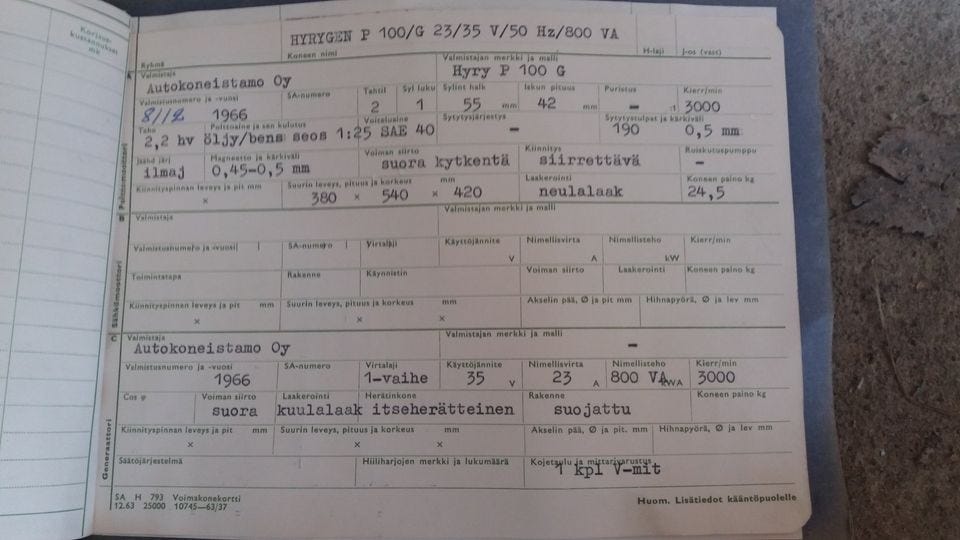 HYRYGEN P 100/G 23/35 V/50 Hz/800 VA
Ryhmä Koneen nimi H-laji J-os (vast)
Valmistaja Valmistajan merkki ja malli
Autokoneistamo Oy Hyry P 100 G
Valmistusnumero ja -vuosi SA-numero Tahtil Syl luku Sylint halk Iskun pituus Puristus Kierr/min
8112 1966 2 1 55 mm 42 mm - :1 3000
Teho Polttoaine ja sen kulutus Voiteluaine Sytytysjärjestys Sytytystulpat ja kärkiväli
2,2 hv öljy/bens seos 1:25 SAE 40 - 190 0,5 mm
Jäähd järj Magneetto ja kärkiväli Voiman siirto Kiinnitys Ruiskutuspumppu
ilmaj 0,45-0,5 mm suora kytkentä siirrettävä -
Kiinnityspinnan leveys ja pit mm Suurin leveys, pituus ja korkeus mm Laakerointi Koneen paino kg
× 380 × 540 × 420 neulalaak 24,5
Valmistaja Valmistajan merkki ja malli
Valmistusnumero ja -vuosi SA-numero Virtalaji Käyttöjännite Nimellisvirta Nimellisteho Kierr/min
V A kW
Toimintatapa Rakenne Käynnistin Voiman siirto Laakerointi Koneen paino kg
Kiinnityspinnan leveys ja pit mm Suurin leveys, pituus ja korkeus mm Akselin pää, Ø ja pit mm Hihnapyörä, Ø ja lev mm
× × ×
C Sähkömoottori
Valmistaja Valmistajan merkki ja malli
Autokoneistamo Oy -
Valmistusnumero ja -vuosi SA-numero Virtalaji Käyttöjännite Nimellisvirta Nimellisteho Kierr/min
1966 1-vaihe 35 V 23 A 800 VA kVA 3000
Cos φ Voiman siirto Laakerointi Herätinkone Rakenne Koneen paino kg
suora kuulalaak itseherätteinen suojattu
Kiinnityspinnan leveys ja pit mm Suurin leveys, pituus ja korkeus mm Akselin pää, Ø ja pit. mm Hihnapyörä, Ø ja lev mm
× × ×
Generaattori
Säätöjärjestelmä Hiiliharjojen merkki ja lukumäärä Kojetaulu ja mittarivarustus
1 kpl V-mit
SA H 793 Voimakonekortti
12.63 25000 10745—63/37
Huom. Lisätiedot kääntöpuolelle